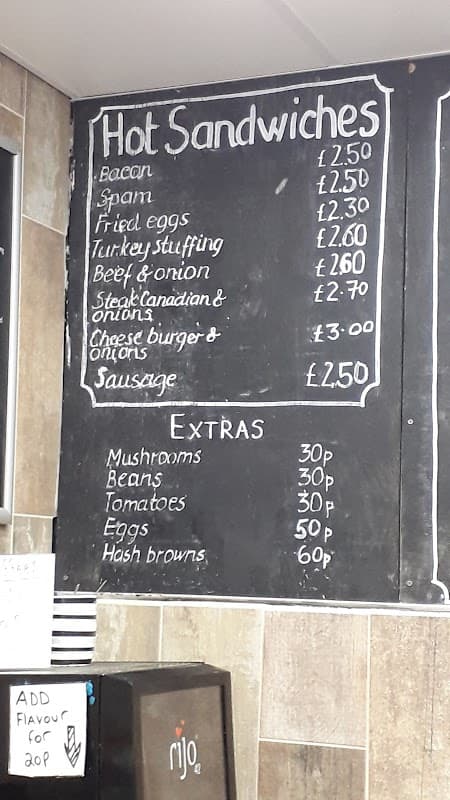 Hot Sandwiches
Bacon £2.50
Spam £2.50
Fried eggs £2.30
Turkey stuffing £2.60
Beef & onion £2.60
Steak Canadian & £2.70
onions
Cheese burger & £3.00
onions
Sausage £2.50
EXTRAS
Mushrooms 30p
Beans 30p
Tomatoes 30p
Eggs 50p
Hash browns 60p
ADD
FLAVOUr
for
20P
rijo
42